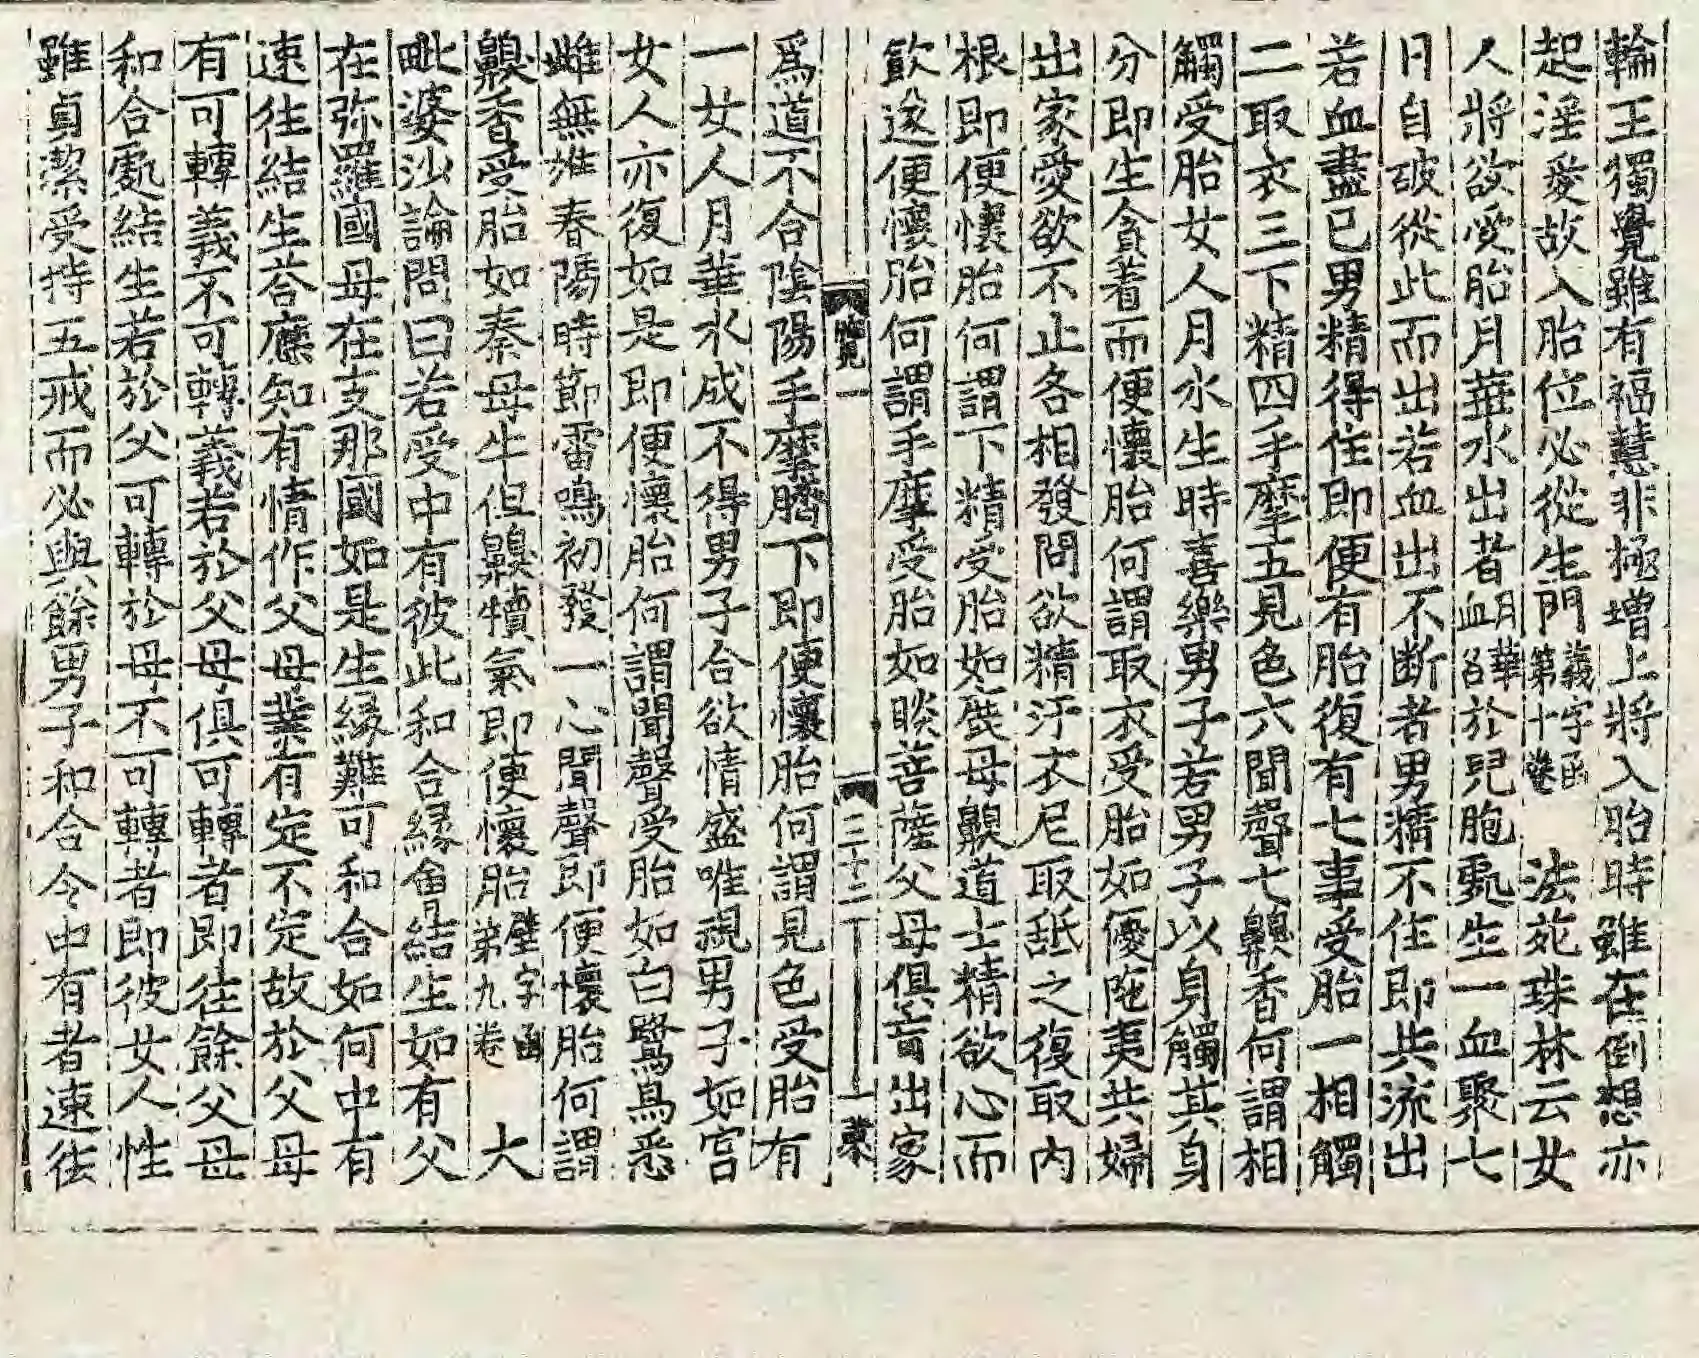 輪王獨覺雖有福慧非極增上將入胎時雖在倒想亦
起淫愛故入胎位必從生門義字函第十卷 法苑珠林云女
人將欲受胎月華水出者月華血名於兒胞處生一血聚七
日自破從此而出若血出不断者男精不住即共流出
若血盡已男精得住即便有胎復有七事受胎一相觸
二取衣三下精四手摩五見色六聞聲七齅香何謂相
觸受胎女人月水生時喜樂男子若男子以身觸其身
分即生貪着而便懷胎何謂取衣受胎如優陁夷共婦
出家愛欲不止各相發問欲精汙衣尼取舐之復取內
根即便懷胎何謂下精受胎如鹿母齅道士精欲心而
飲遂便懷胎何謂手摩受胎如睒菩薩父母俱盲出家
覽一 三十二 一 東
爲道不合陰陽手摩臍下即便懷胎何謂見色受胎有
一女人月華水成不得男子合欲情盛唯視男子如宮
女人亦復如是即便懷胎何謂聞聲受胎如白鷺鳥悉
雌無雄春陽時節雷鳴初發一心聞聲即便懷胎何謂
齅香受胎如秦母牛但齅犢氣即便懷胎璧字函第九卷 大
毗婆沙論問曰若受中有彼此和合緣會結生如有父
在弥羅國母在支那國如是生緣難可和合如何中有
速往結生荅應知有情作父母業有定不定故於父母
有可轉義不可轉義若於父母俱可轉者即往餘父母
和合處結生若於父可轉於母不可轉者即彼女人性
雖貞潔受持五戒而必與餘男子和合令中有者速往